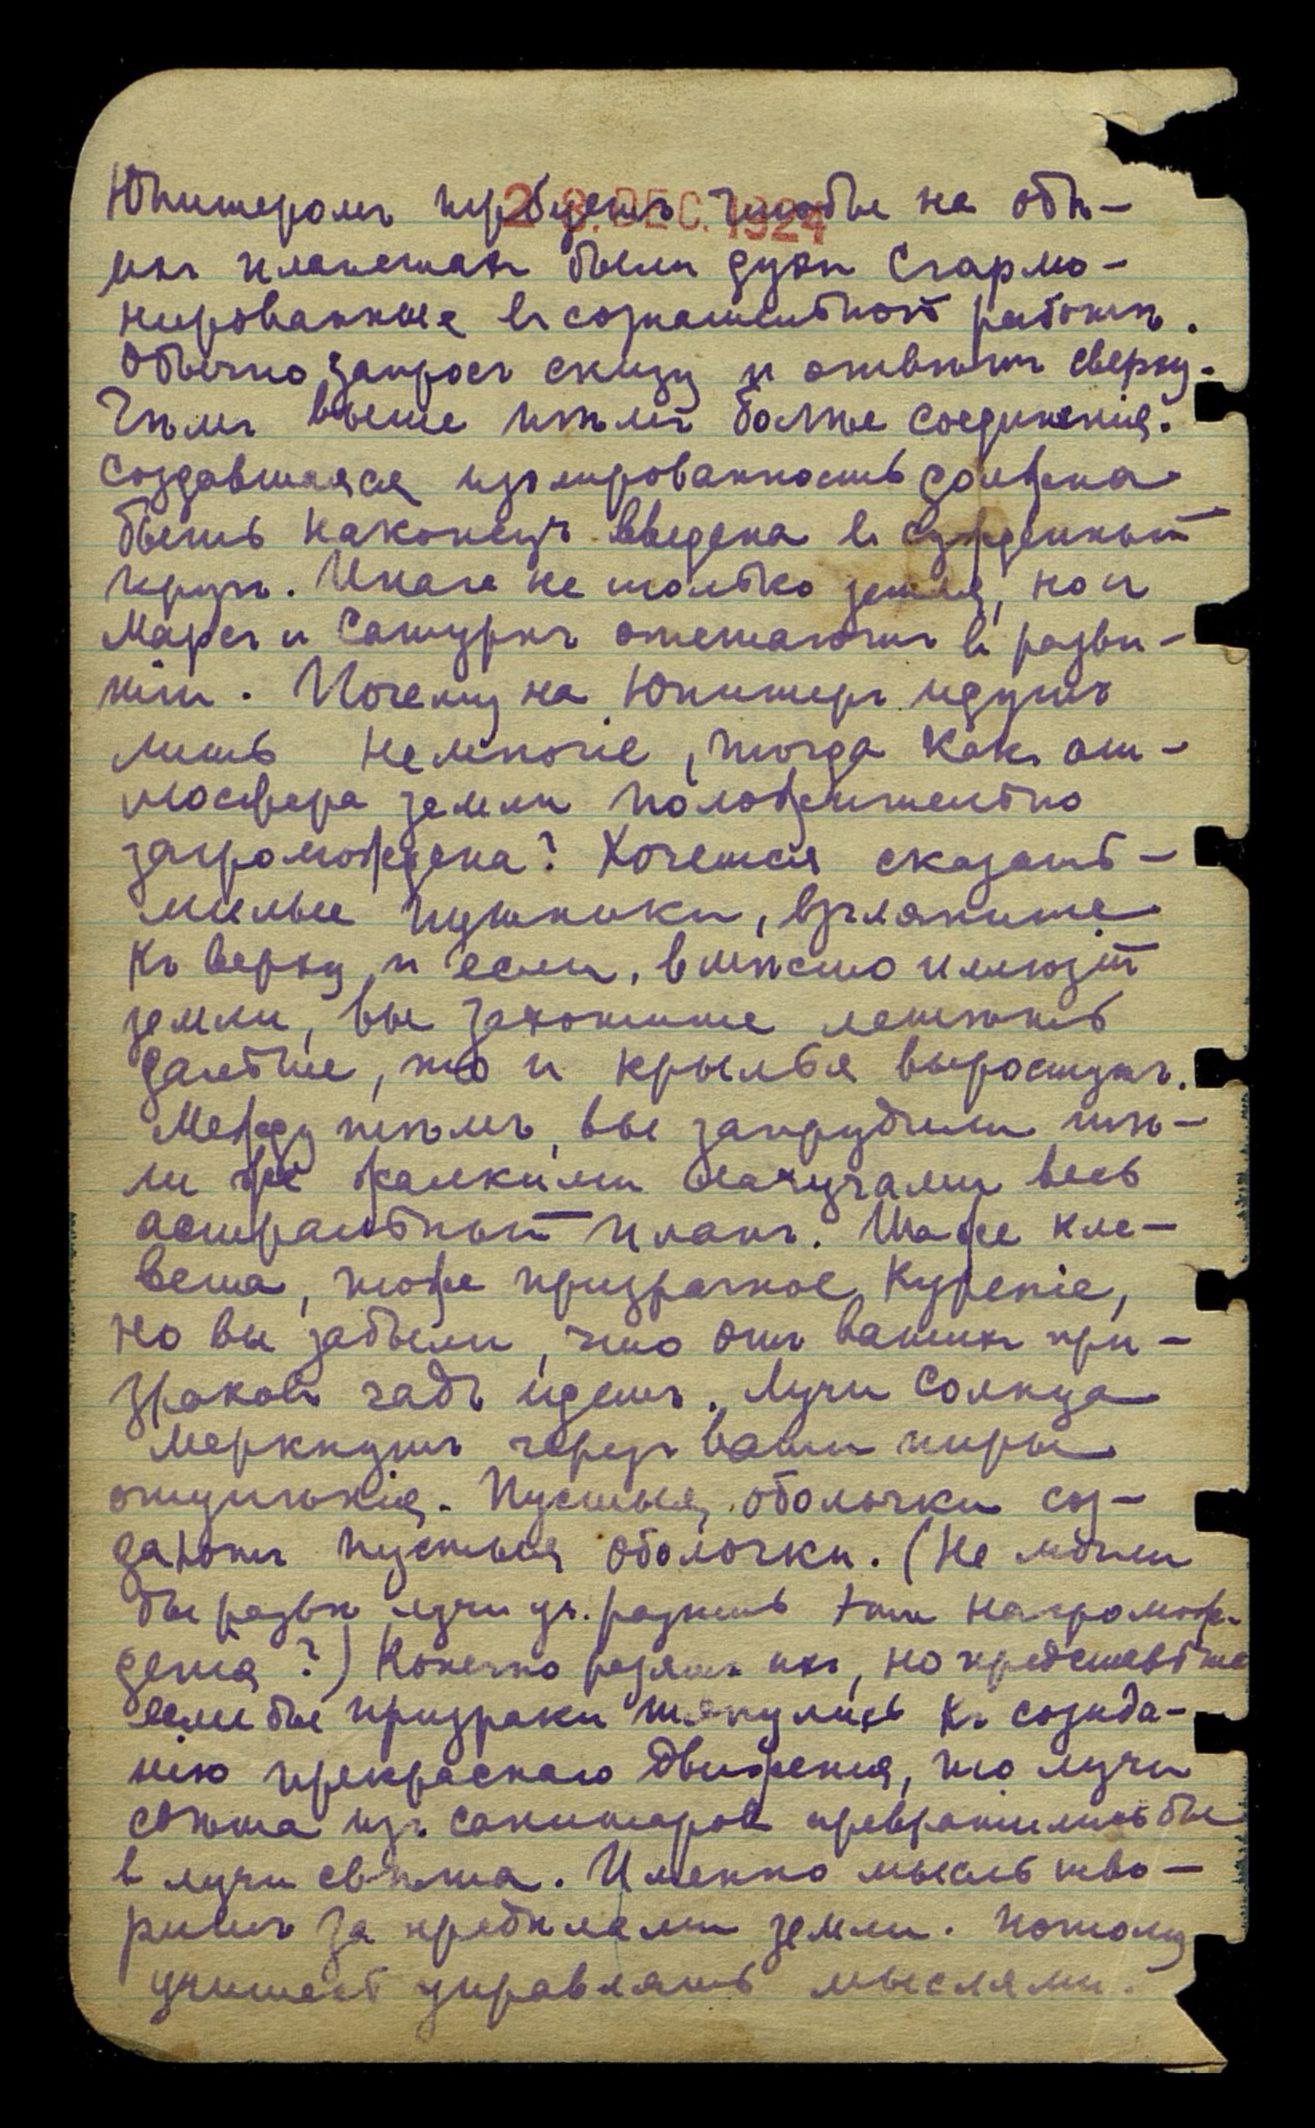 Юпитеромъ требуетъ чтобы на обѣ-
ихъ планетахъ были духи сгармо-
нированные въ сознательной работѣ.
28. DEC. 1924
Обычно запросъ снизу и отвѣтъ сверху.
Чѣмъ выше тѣмъ более соединенія.
Создавшаяся изолированность должна
быть наконецъ введена въ сужденный
кругъ. Иначе не только земля, но и
Марсъ и Сатурнъ отстаютъ въ разви-
тіи. Почему на Юпитеръ идутъ
лишь немногіе, тогда какъ ат-
мосфера земли положительно
загромождена? Хочется сказать –
милые путники, взгляните
къ верху и если, вмѣсто иллюзій
земли, вы захотите летѣть
дальше, то и крылья выростутъ.
Между тѣмъ, вы запрудили тѣ-
ми же жалкими лачугами весь
астральный планъ. Таже кле-
вета, тоже призрачное куреніе,
но вы забыли, что отъ вашихъ при-
зраковъ чадъ идетъ. Лучи солнца
меркнутъ черезъ ваши пиры
отупѣнія. Пустыя оболочки соз-
даютъ пустыя оболочки. (Не могли
бы развѣ лучи у. разить эти нагромож-
денія?) Конечно разятъ ихъ, но представьте
если бы призраки тянулись къ созида-
нію прекраснаго движенія, то лучи
свѣта изъ санитаровъ превратились бы
въ лучи свѣта. Именно мысль тво-
ритъ за предѣлами земли. Потому
учитесь управлять мыслями.